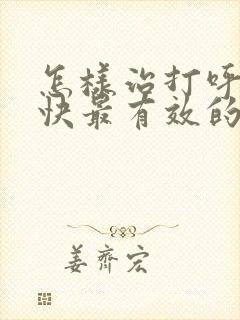 怎样治打呼
快最有效的
姜齐宏